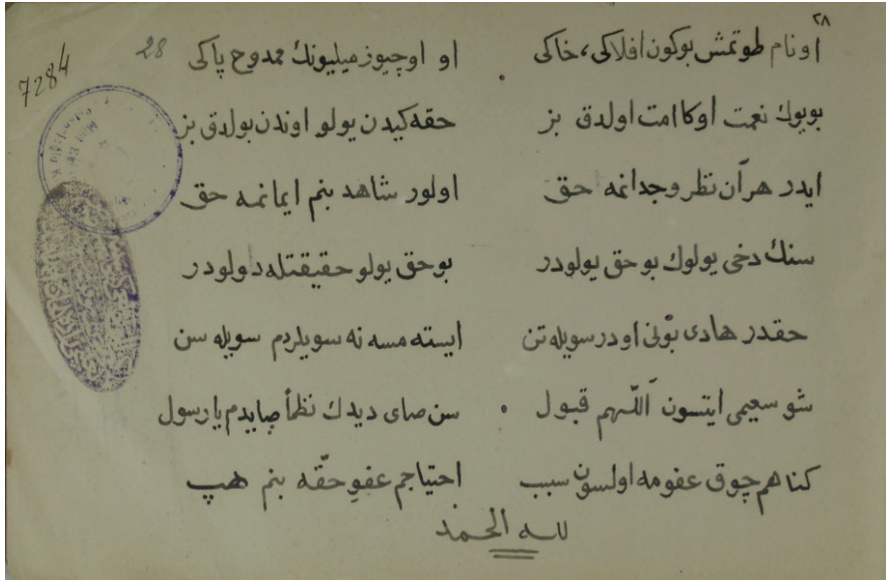 ٢٨
7284
28
او نام طوتمش بوكون افلاكی، خاكی او اوچیوز میلیونك ممدوح پاكی
بویوك نعمت اوكا امت اولدق بز حقه كیدن یولو اوندن بولدق بز
ایدر هر آن نظر وجدانمه حق اولور شاهد بنم ایمانمه حق
سنك دخی یولوك بو حق یولودر بو حق یولو حقیقتله دولودر
حقدر هادی بونی اودر سویله تن ایسته مسه نه سویلردم سویله سن
شو سعیمی ایتسون اللّهم قبول سن صای دیدك نظماً صایدم یا رسول
كناهم چوق عفومه اولسون سبب احتیاجم عفو حقّه بنم هپ
لله الحمد